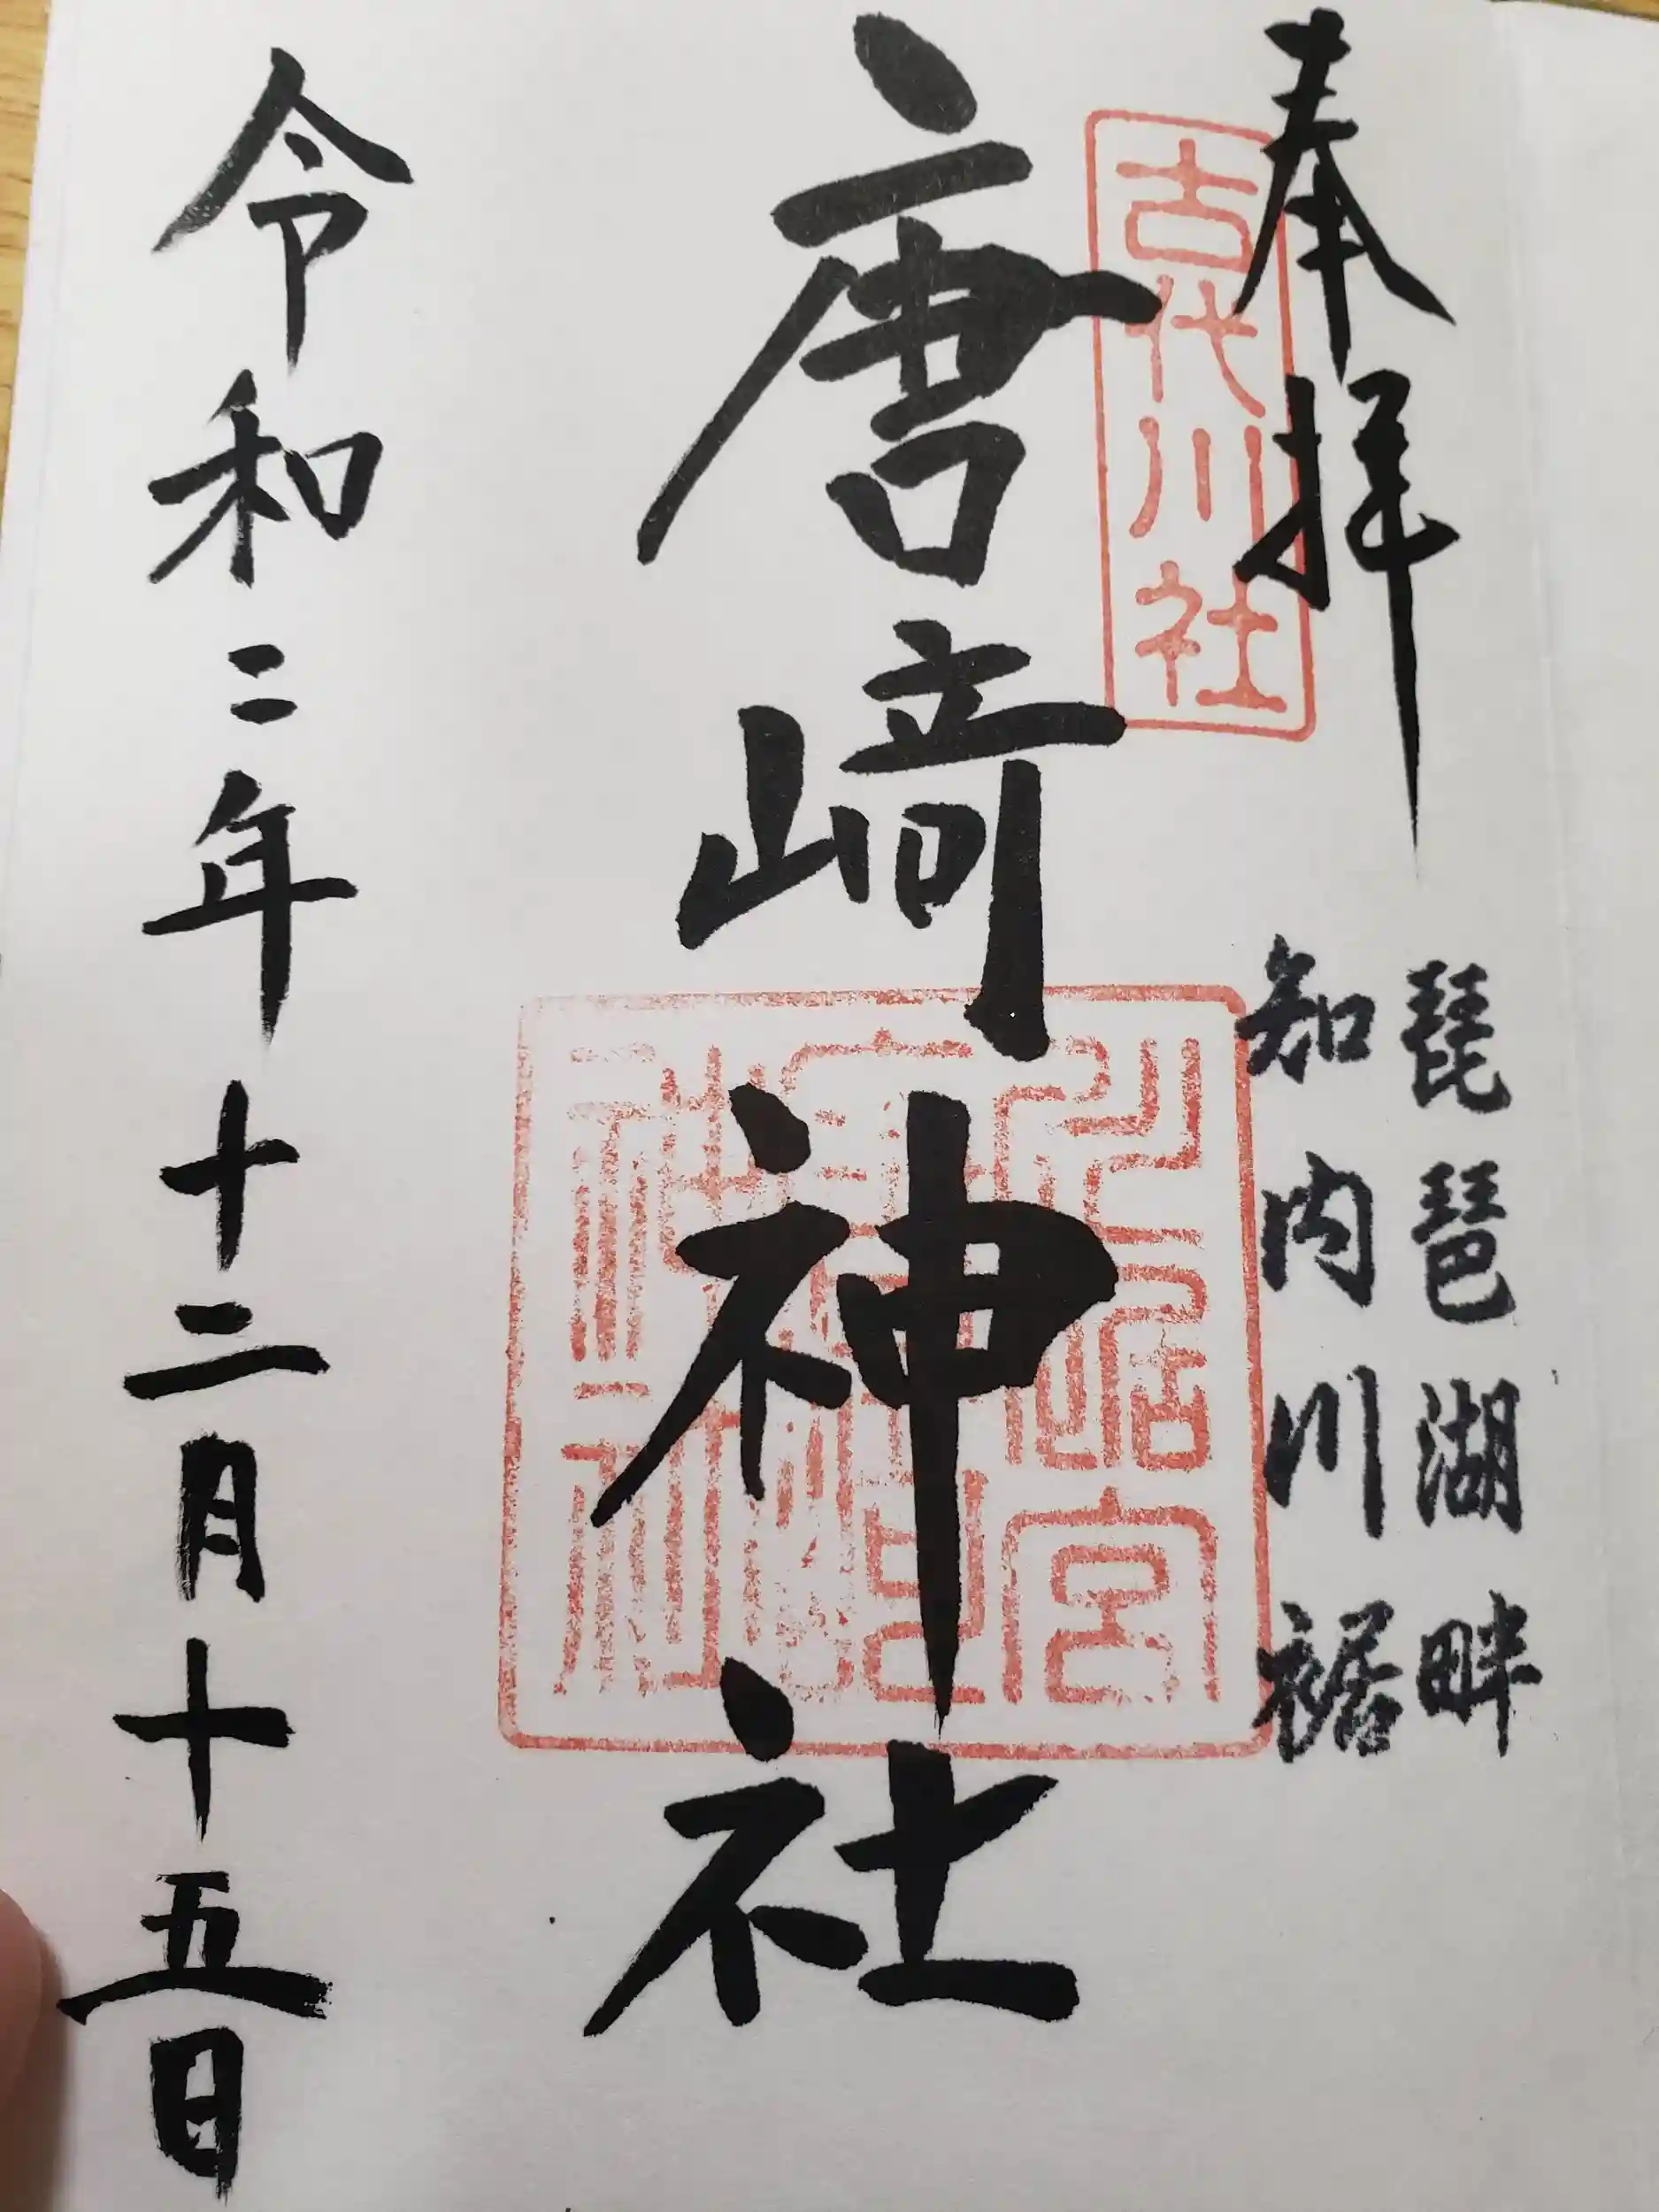 奉拝
琵琶湖畔
知内川裾
古代川社
唐﨑神社
令和二年十二月十五日